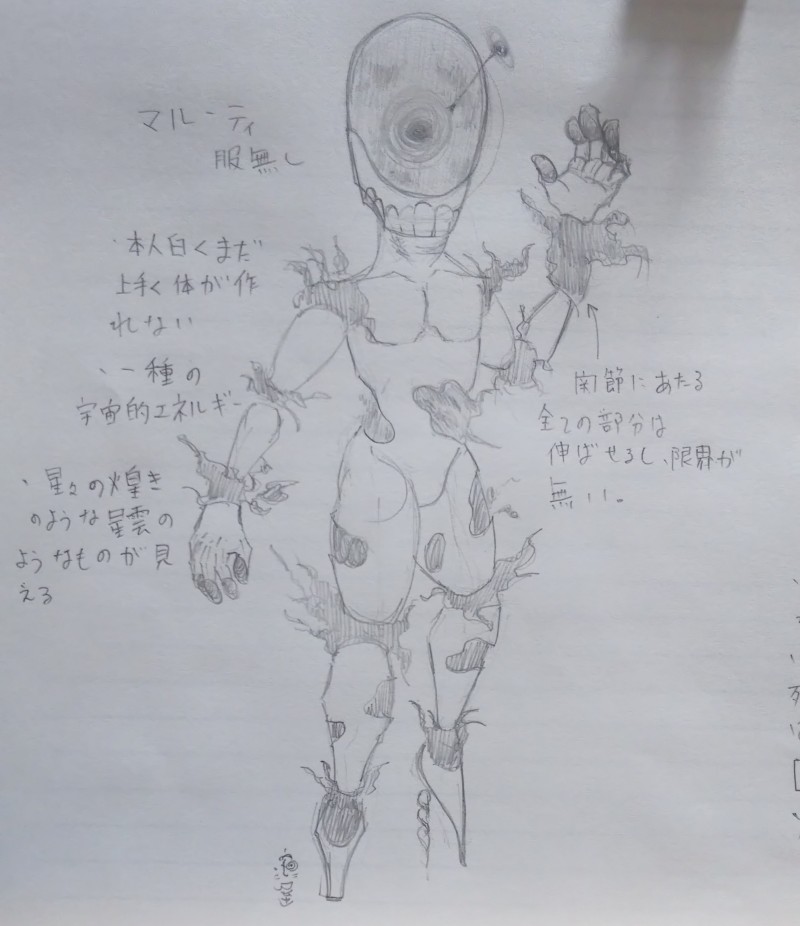 マルーティ
服無し
・本人曰くまだ
上手く体が作
れない
・一種の
宇宙的エネルギー
・星々の煌き
のような星雲の
ようなものが見
える
関節にあたる
全ての部分は
伸ばせるし、限界が
無い。